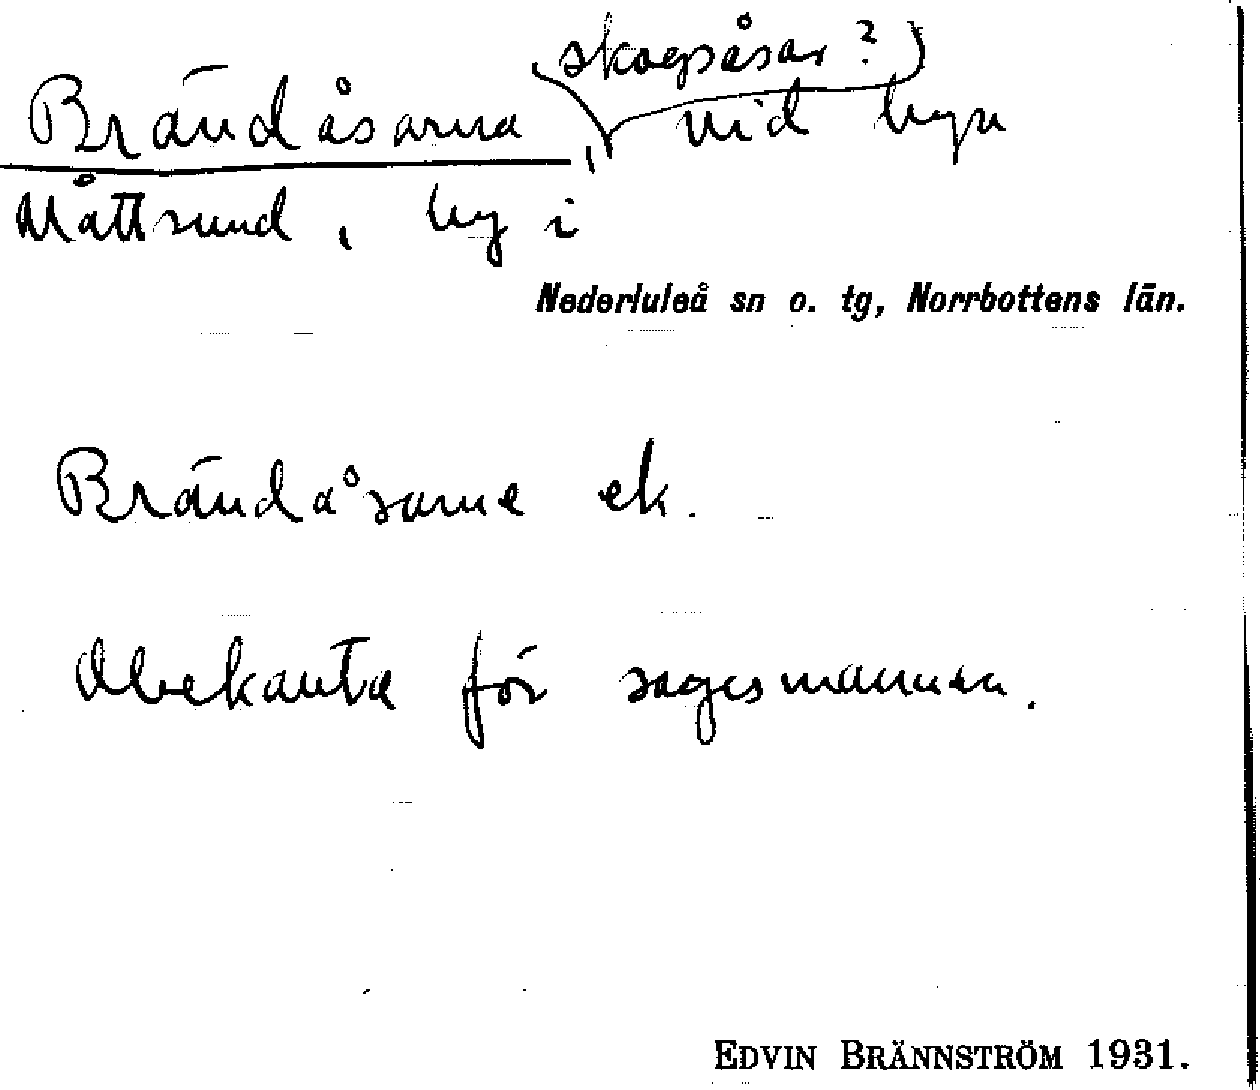 Brändåsarna, (skogsåsar?) vid byn
Måttsund, by i
Nederluleå sn o. tg, Norrbottens län.
Brändåsarne ek.
Obekanta för sagesmannen.
EDVIN BRÄNNSTRÖM 1931.